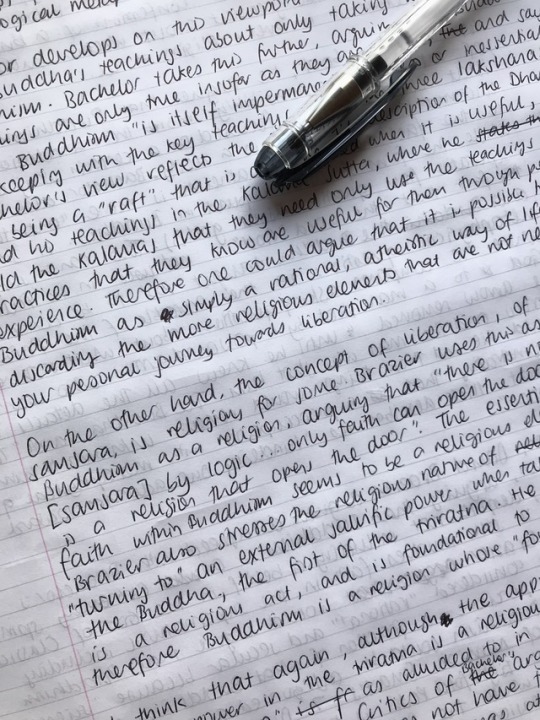 ogical
or develops on this viewpoint
Buddha's teachings about only taking
nism. Bachelor takes this further, arguin the and say
ings are only true insofar as they a or nesserhar
Buddhism "is itself impermane three lakshana
keeping with the key teachings description of the Dha
chelor's view reflects the when it is useful,
being a "raft" that is Sutta, where he states th
d no teachings in the Kalama only use the teachings
ld the Kalamas that they need for them through p
ractices that they know are useful it is possible
experience. Therefore one could argue that way of life
Buddhism as simply a rational, atheistic are not ne
discarding the more religious elements that
your pesonal journey towards liberation.
On the other hand, the concept of liberation, of
samsara, is religious for some. Brazier uses this as
Buddhism as a religion, arguing that "there is n
[samsara] by logic ... only faith can open the doo
is a religion that opens the door". The essenti
faith within Buddhism seems to be a religious el
Brazier also stresses the religious nature of
"turning to" an external salvific power when ta
the Buddha, the first of the triratna. He
is a religious act, and is foundational to
therefore Buddhism is a religion whose "fo
think that again, although the app
power in the triratna is a religious
is as alluded to in
Critics of the Bachelor's arg
not have t